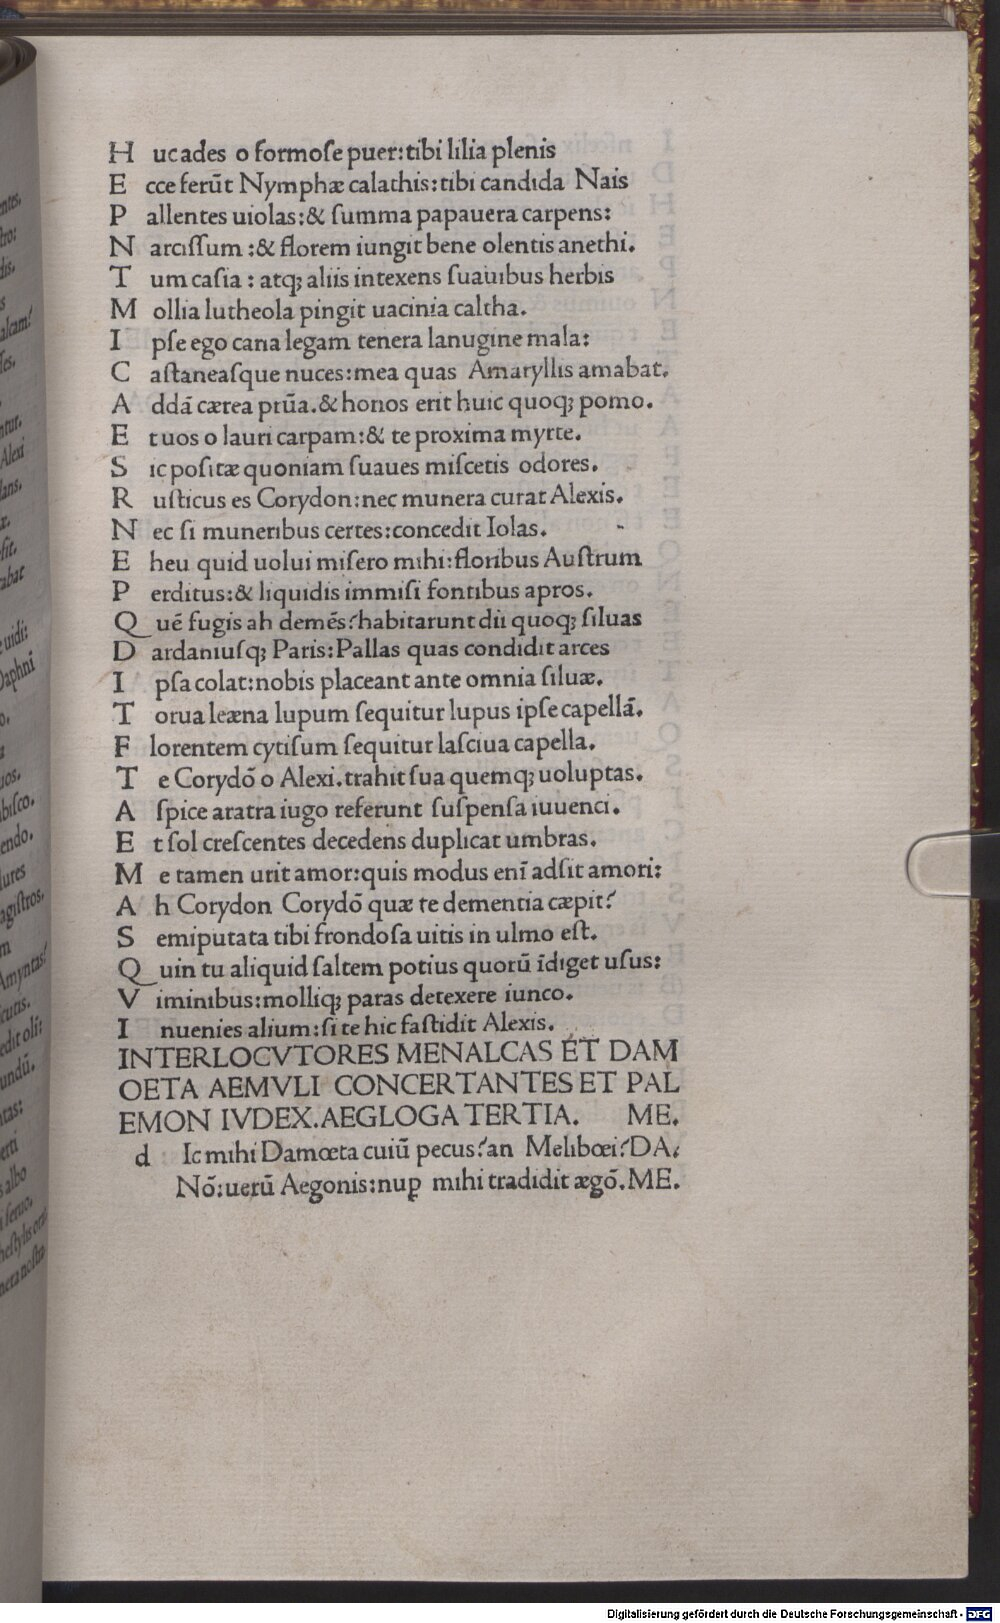 H ucades o formoſe puer:tibi lilia plenis
E cce ferūt Nymphæ calathis:tibi candida Nais
P allentes uiolas:& ſumma papauera carpens:
N arciſſum :& florem iungit bene olentis anethi.
T um caſia : atqꝫ aliis intexens ſuauibus herbis
M ollia luteola pingit uacinia caltha.
I pſe ego cana legam tenera lanugine mala:
C aſtaneaſque nuces:mea quas Amaryllis amabat.
A ddā cærea prūa.& honos erit huic quoqꝫ pomo.
E t uos o lauri carpam:& te proxima myrte.
S ic poſitæ quoniam ſuaues miſcetis odores.
R uſticus es Corydon:nec munera curat Alexis.
N ec ſi muneribus certes:concedit Iolas.
E heu quid uolui miſero mihi:floribus Auſtrum
P erditus:& liquidis immiſi fontibus apros.
Q uē fugis ah demēs?habitarunt dii quoqꝫ ſiluas
D ardaniuſqꝫ Paris:Pallas quas condidit arces
I pſa colat:nobis placeant ante omnia ſiluæ.
T orua leæna lupum ſequitur lupus ipſe capellā.
F lorentem cytiſum ſequitur laſciua capella.
T e Corydō o Alexi.trahit ſua quemqꝫ uoluptas.
A ſpice aratra iugo referunt ſuſpenſa iuuenci.
E t ſol creſcentes decedens duplicat umbras.
M e tamen urit amor:quis modus enī adſit amori:
A h Corydon Corydō quæ te dementia cæpit?
S emiputata tibi frondoſa uitis in ulmo eſt.
Q uin tu aliquid ſaltem potius quorū īdiget uſus:
V iminibus:molliqꝫ paras detexere iunco.
I nuenies alium:ſi te hic faſtidit Alexis.
INTERLOCVTORES MENALCAS ET DAM
OETA AEMVLI CONCERTANTES ET PAL
EMON IVDEX.AEGLOGA TERTIA. ME.
d Ic mihi Damœta cuiū pecus?an Melibœi?DA.
Nō:uerū Aegonis:nuꝑ mihi tradidit ægō.ME.
Digitalisierung gefördert durch die Deutsche Forschungsgemeinschaft - DFG